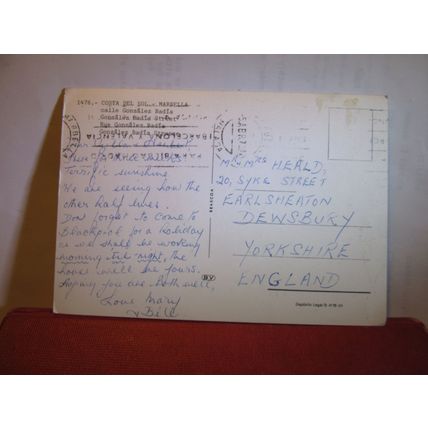 1476.- COSTA DEL SOL - MARBELLA
calle González Badía
González Badía Street
Rue González Badía
González Badía Strasse
BARCELONA Y VALENCIA
Dear
terrific sunshine.
We are seeing how the
other half lives.
Dont forget to come to
Blackpool for a holiday
as we shall be working
morning till night, the
house will be yours.
Hoping you are both well,
Love Mary
& Bill
BEASCOA
BV
Mr & Mrs HEALD,
20, SYKE STREET
EARLSHEATON
DEWSBURY
YORKSHIRE
ENGLAND
Depósito Legal B.